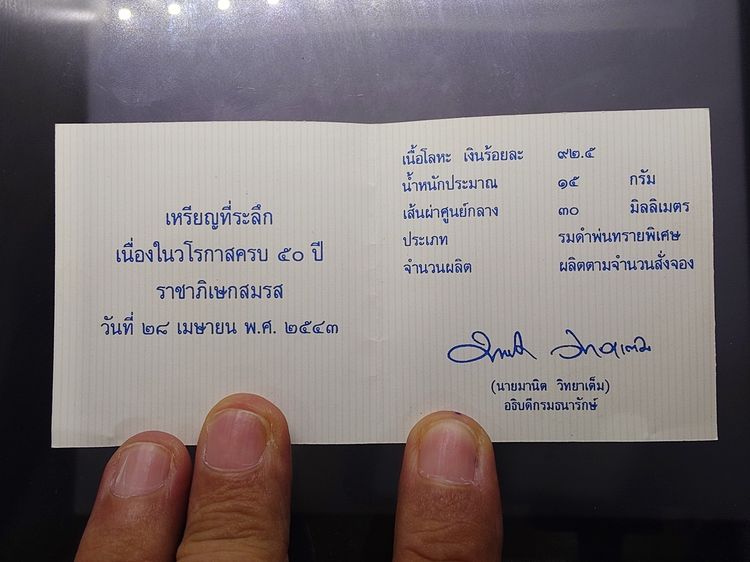 เหรียญที่ระลึก
เนื่องในวโรกาสครบ ๕๐ ปี
ราชาภิเษกสมรส
วันที่ ๒๘ เมษายน พ.ศ. ๒๕๔๓
เนื้อโลหะ เงินร้อยละ ๙๒.๕
น้ำหนักประมาณ ๑๕ กรัม
เส้นผ่าศูนย์กลาง ๓๐ มิลลิเมตร
ประเภท รมดำพ่นทรายพิเศษ
จำนวนผลิต ผลิตตามจำนวนสั่งจอง
(นายมานิต วิทยาเต็ม)
อธิบดีกรมธนารักษ์